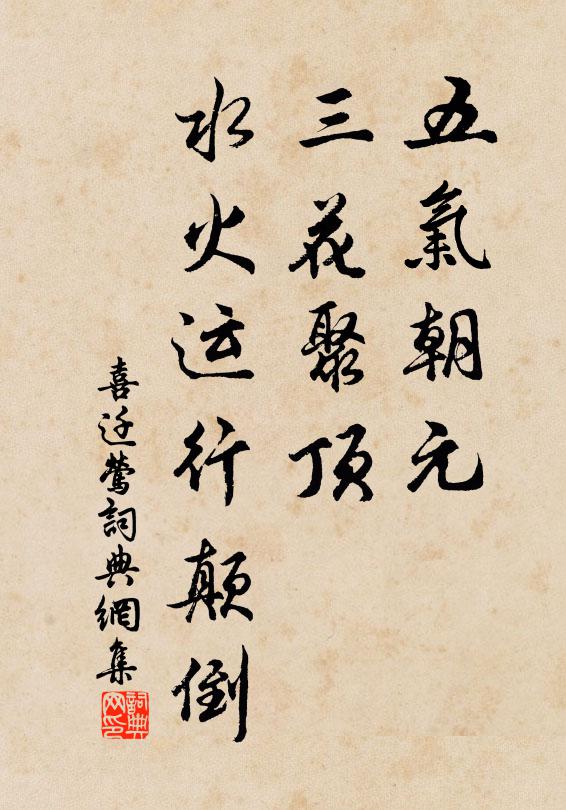 五氣朝元
三花聚顶
水火运行颠倒
喜迁鶯詞典網集
詞典网印